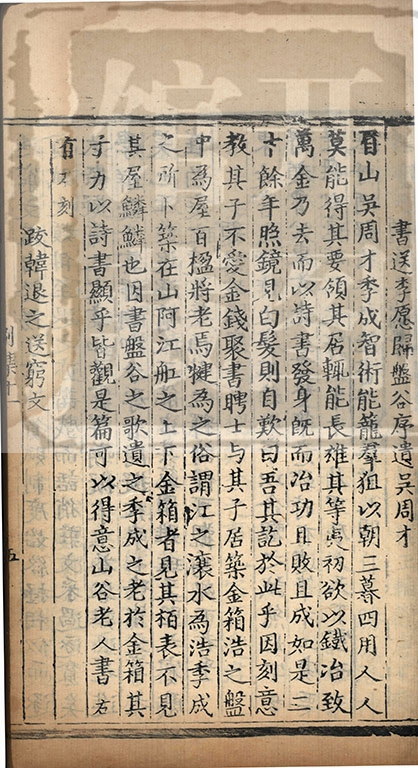 書送李愿歸盤谷序遺吳周才
眉山吳周才季成智術能籠羣狙以朝三暮四用人人
莫能得其要領其居輒能長雄其等夷初欲以鐵冶致
萬金乃去而以詩書發身旣而冶功日敗且成如是二
十餘年照鏡見白髮則自歎曰吾其說於此乎因刻意
教其子不愛金錢聚書聘士与其子居築金箱浩之盤
中為屋百楹將老焉犍為之俗謂江之瀼水為浩季成
之所卜築在山阿江舡之上下金箱者見其栢表不見
其屋鱗鱗也因書盤谷之歌遺之季成之老於金箱其
子力以詩書顯乎皆觀是篇可以得意山谷老人書右
有不刻
跋韓退之送窮文
別集十一
五